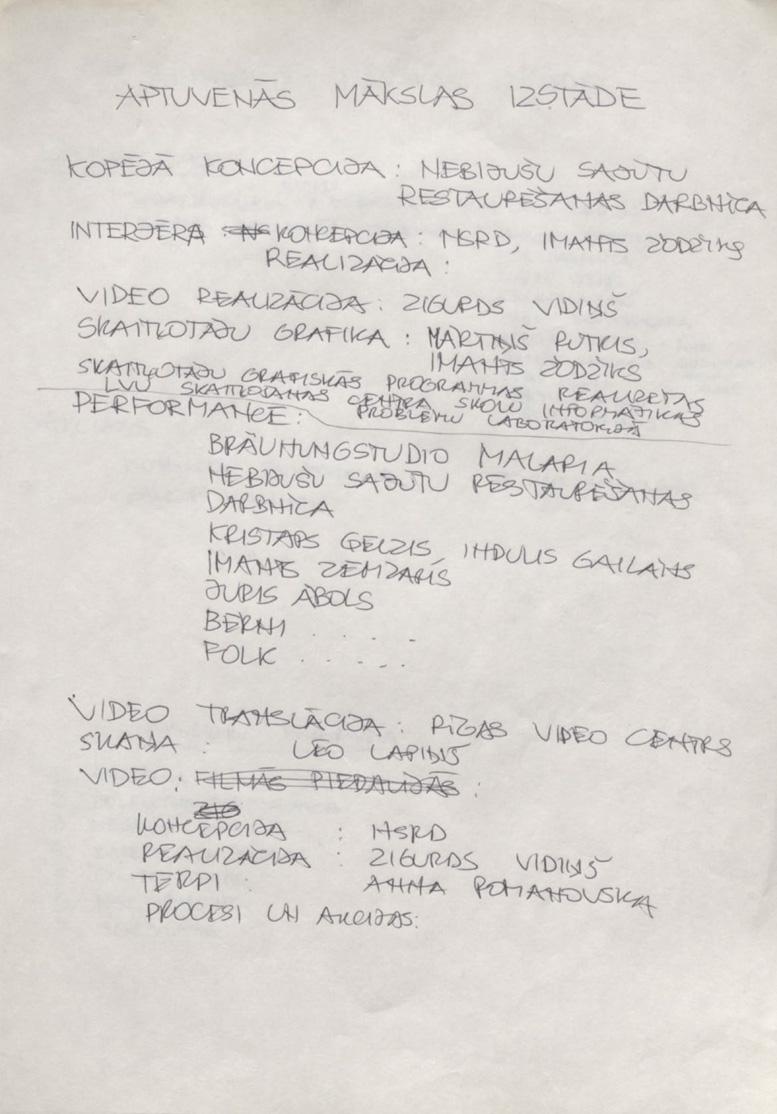 APTUVENĀS MĀKSLAS IZSTĀDE
KOPĒJĀ KONCEPCIJA: NEBIJUŠU SAJŪTU
RESTAURĒŠANAS DARBNĪCA
INTERJĒRA KONCEPCIJA: NSRD, IMANTS ŽODŽIKS
REALIZĀCIJA:
VIDEO REALIZĀCIJA: ZIGURDS VIDIŅŠ
SKAITĻOTĀJU GRAFIKA: MĀRTIŅŠ RUTKIS,
IMANTS ŽODŽIKS
SKAITĻOTĀJU GRAFISKĀS PROGRAMMAS REALIZĒTAS
LVU SKAITĻOŠANAS CENTRA SKOLU INFORMĀTIKAS
PROBLĒMU LABORATORIJĀ
PERFORMANCE:
BRÄUNUNGSTUDIO MALARIA
NEBIJUŠU SAJŪTU RESTAURĒŠANAS
DARBNĪCA
KRISTAPS ĢELZIS, INDULIS GAILĀNS
IMANTS ZEMZARIS
JURIS ĀBOLS
BĒRNI . . . . .
FOLK . . . . . .
VIDEO TRANSLĀCIJA: RĪGAS VIDEO CENTRS
SKAŅA : LEO LAPIDUS
VIDEO: FILMĀS PIEDALIJĀS :
ZIG
KONCEPCIJA : NSRD
REALIZĀCIJA : ZIGURDS VIDIŅŠ
TĒRPI : ANNA ROMANOVSKA
PROCESI UN AKCIJAS: